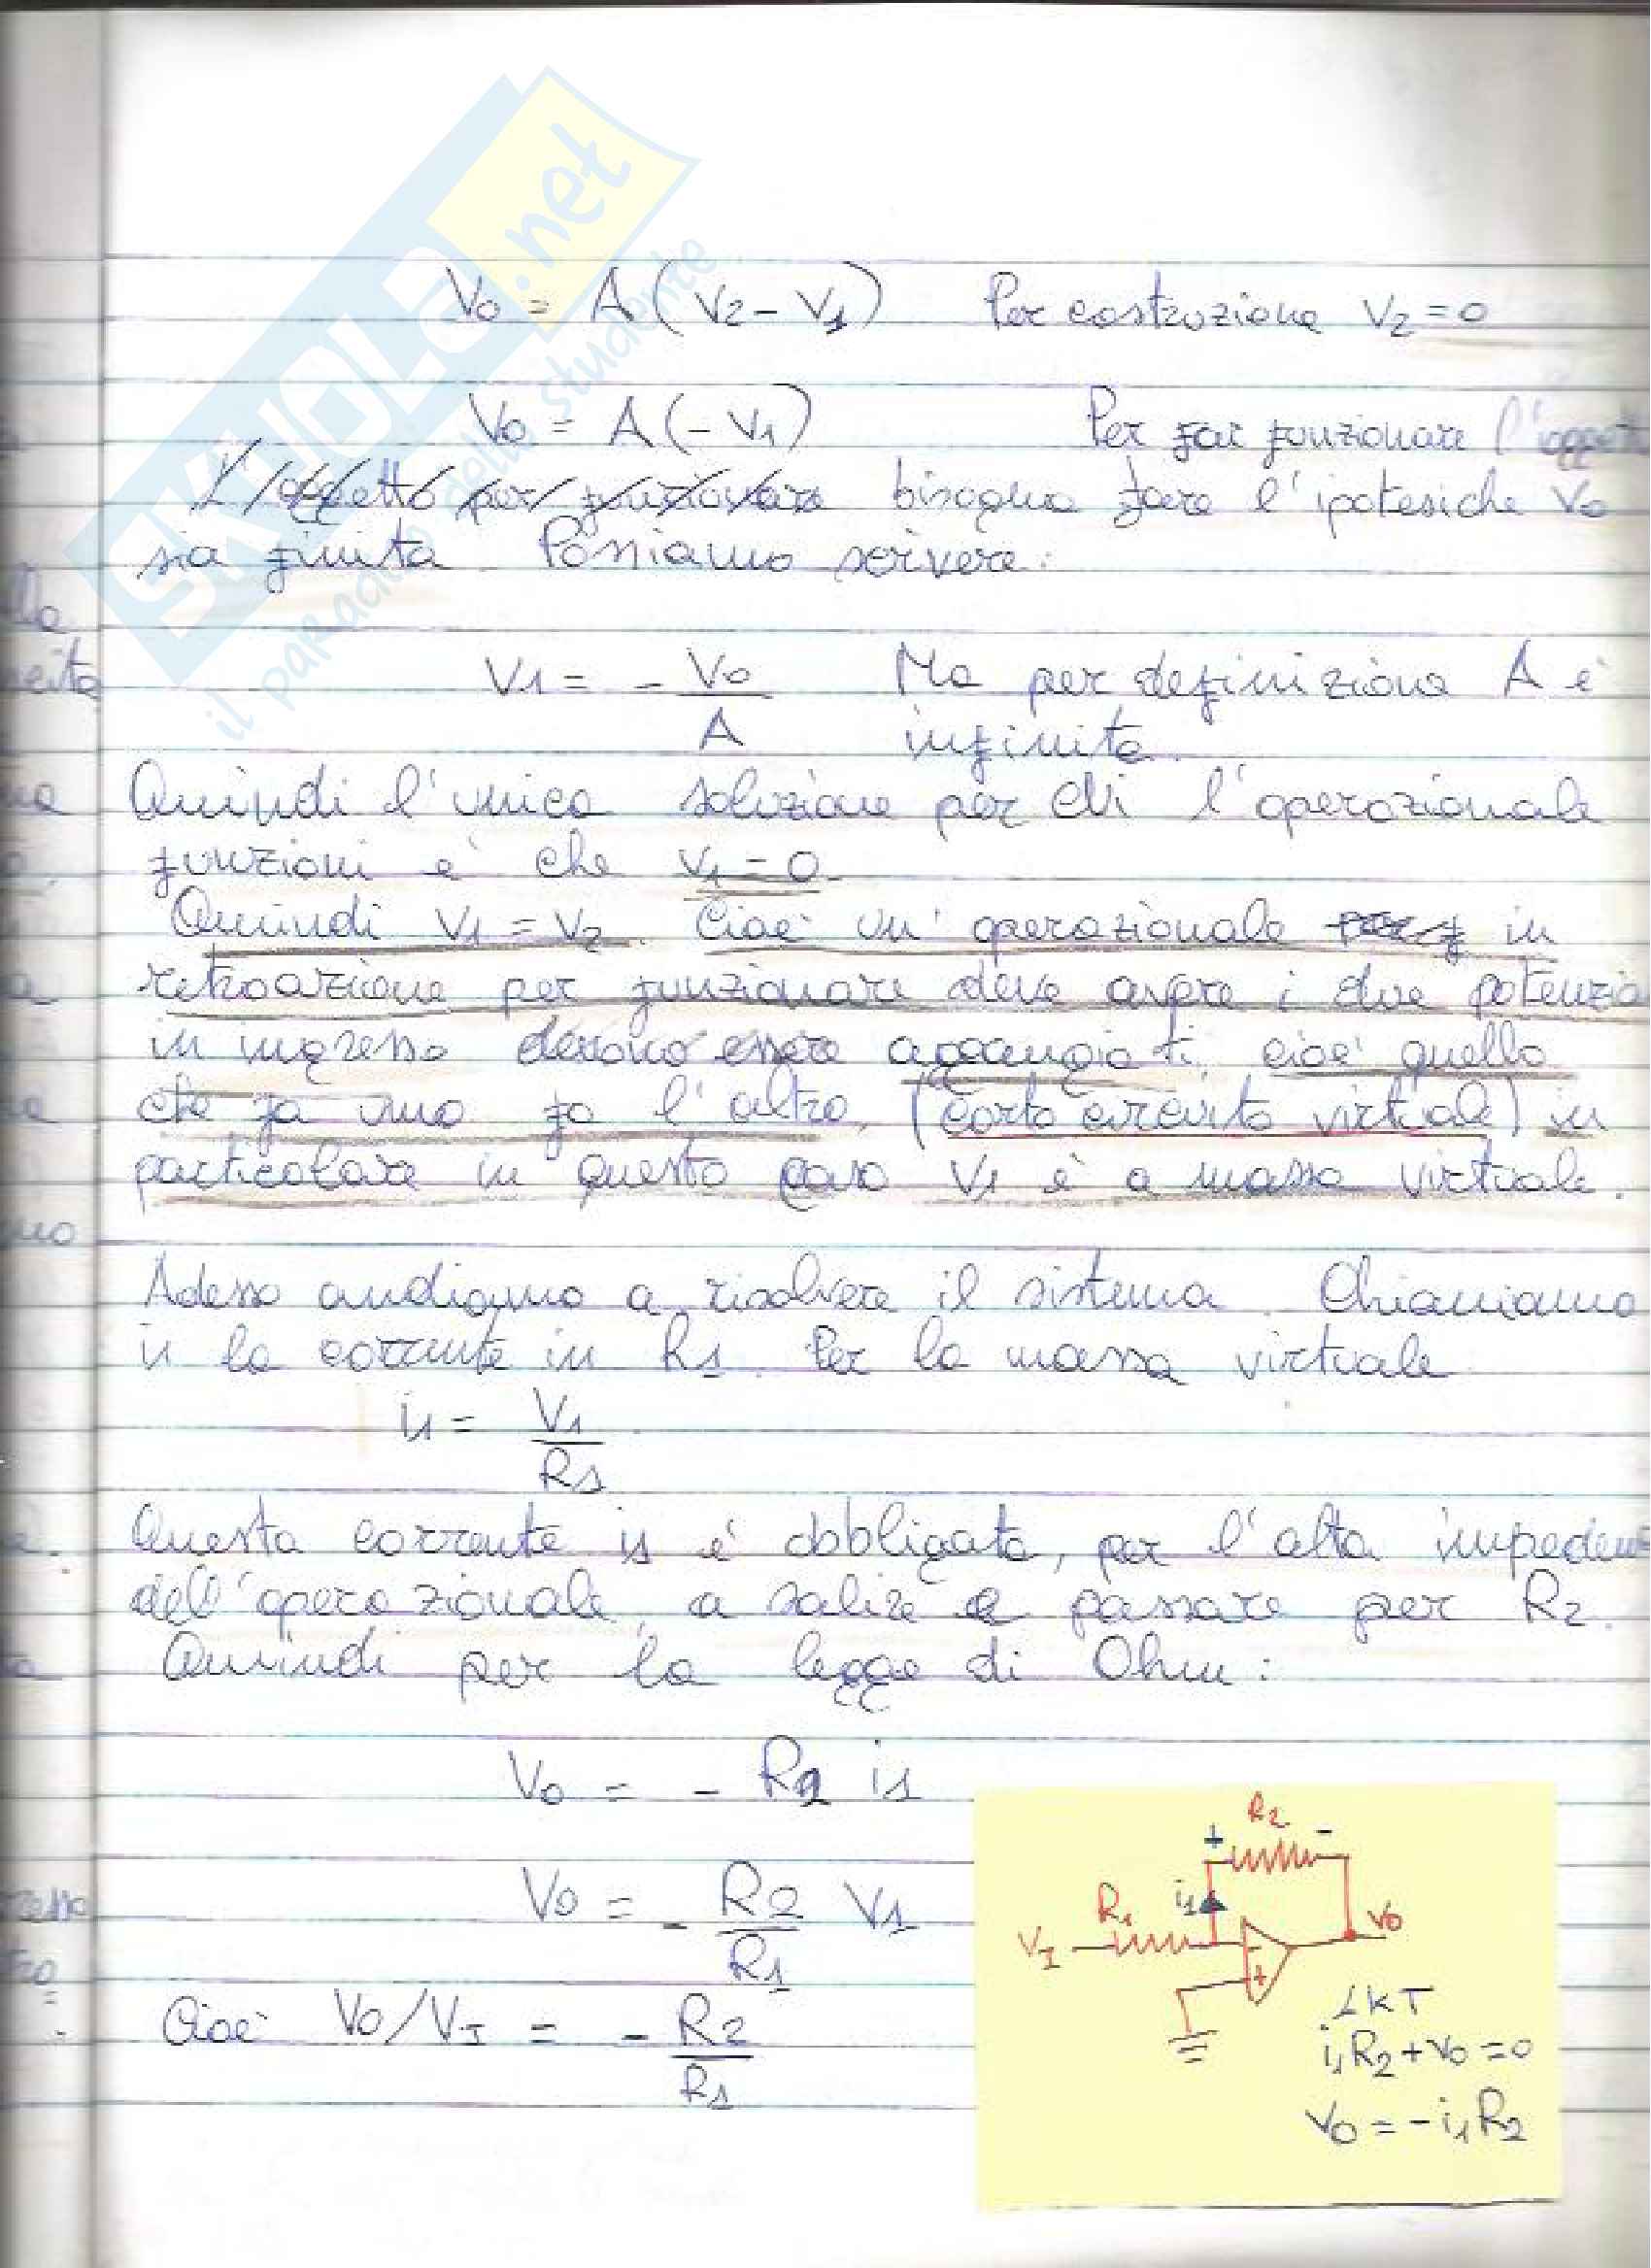 SKUOLA.net
il paradiso dello studente
V0 = A (V2 - V1) Per costruzione V2 = 0
V0 = A (- V1) Per far funzionare l'oggetto
L'oggetto per funzionare bisogna fare l'ipotesi che V0
sia finita. Possiamo scrivere:
V1 = - V0 / A Ma per definizione A è
infinita.
Quindi l'unica soluzione per chi l'operazionale
funzioni è che V1 = 0.
Quindi V1 = V2. Cioè un'operazionale in
retroazione per funzionare deve avere i due potenzia
in ingresso devono essere agganciati, cioè quello
che fa uno fa l'altro, (corto circuito virtuale) in
particolare in questo caso V1 è a massa virtuale.
Adesso andiamo a risolvere il sistema. Chiamiamo
i1 la corrente in R1. Per la massa virtuale
i1 = V1 / R1
Questa corrente i1 è obbligata, per l'alta impeden
dell'operazionale, a salire e passare per R2.
Quindi per la legge di Ohm:
V0 = - R2 i1
V0 = - R2 / R1 V1
Cioè V0/VI = - R2 / R1
R2
+ -
R1 i1
VI - V0
+
LKT
i1R2 + V0 = 0
V0 = - i1R2